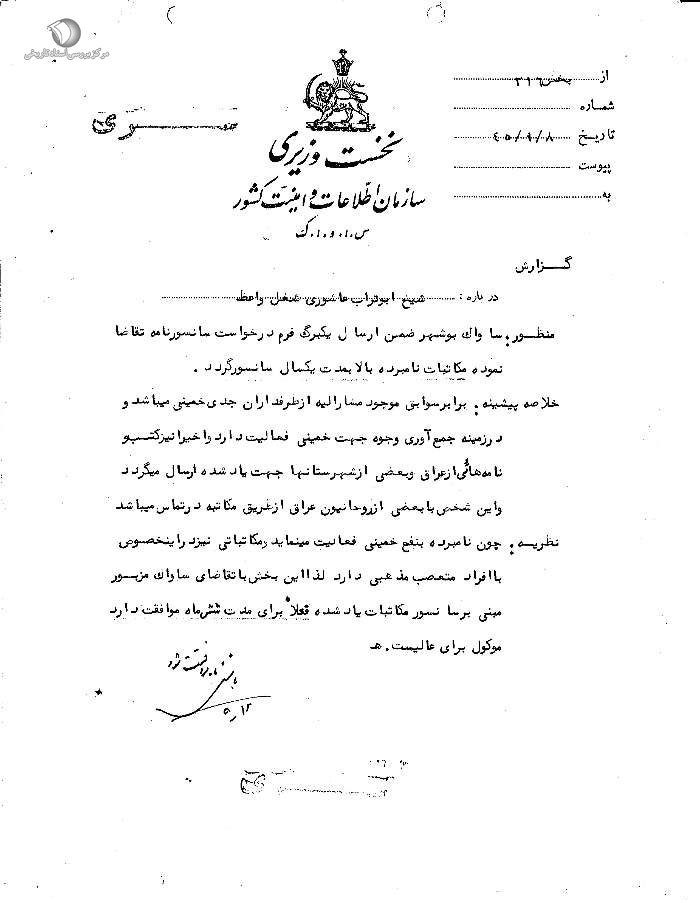 مرکز بررسی اسناد تاریخی
از بخش ۳۱۶
شماره
تاریخ ۴۵/۹/۸
پیوست
به
سری
نخست وزیری
سازمان اطلاعات و امنیت کشور
س.ا.و.ا.ک
گزارش
درباره: شیخ ابوتراب عاشوری شغل واعظ
منظور: ساواک بوشهر ضمن ارسال یکبرگ فرم درخواست سانسورنامه تقاضا
نموده مکاتبات نامبرده بالا بمدت یکسال سانسور گردد.
خلاصه پیشینه: برابر سوابق موجود مشارالیه از طرفداران جدی خمینی میباشد و
در زمینه جمع آوری وجوه جهت خمینی فعالیت دارد و اخیرا نیز کتب و
نامه هائی از عراق و بعضی از شهرستانها جهت یاد شده ارسال میگردد
و این شخص با بعضی از روحانیون عراق از طریق مکاتبه در تماس میباشد
نظریه: چون نامبرده بنفع خمینی فعالیت مینماید و مکاتباتی نیز در اینخصوص
با افراد متعصب مذهبی دارد لذا این بخش با تقاضای ساواک مزبور
مبنی بر سانسور مکاتبات یاد شده فعلاً برای مدت شش ماه موافقت دارد
موکول برای عالیست. هـ